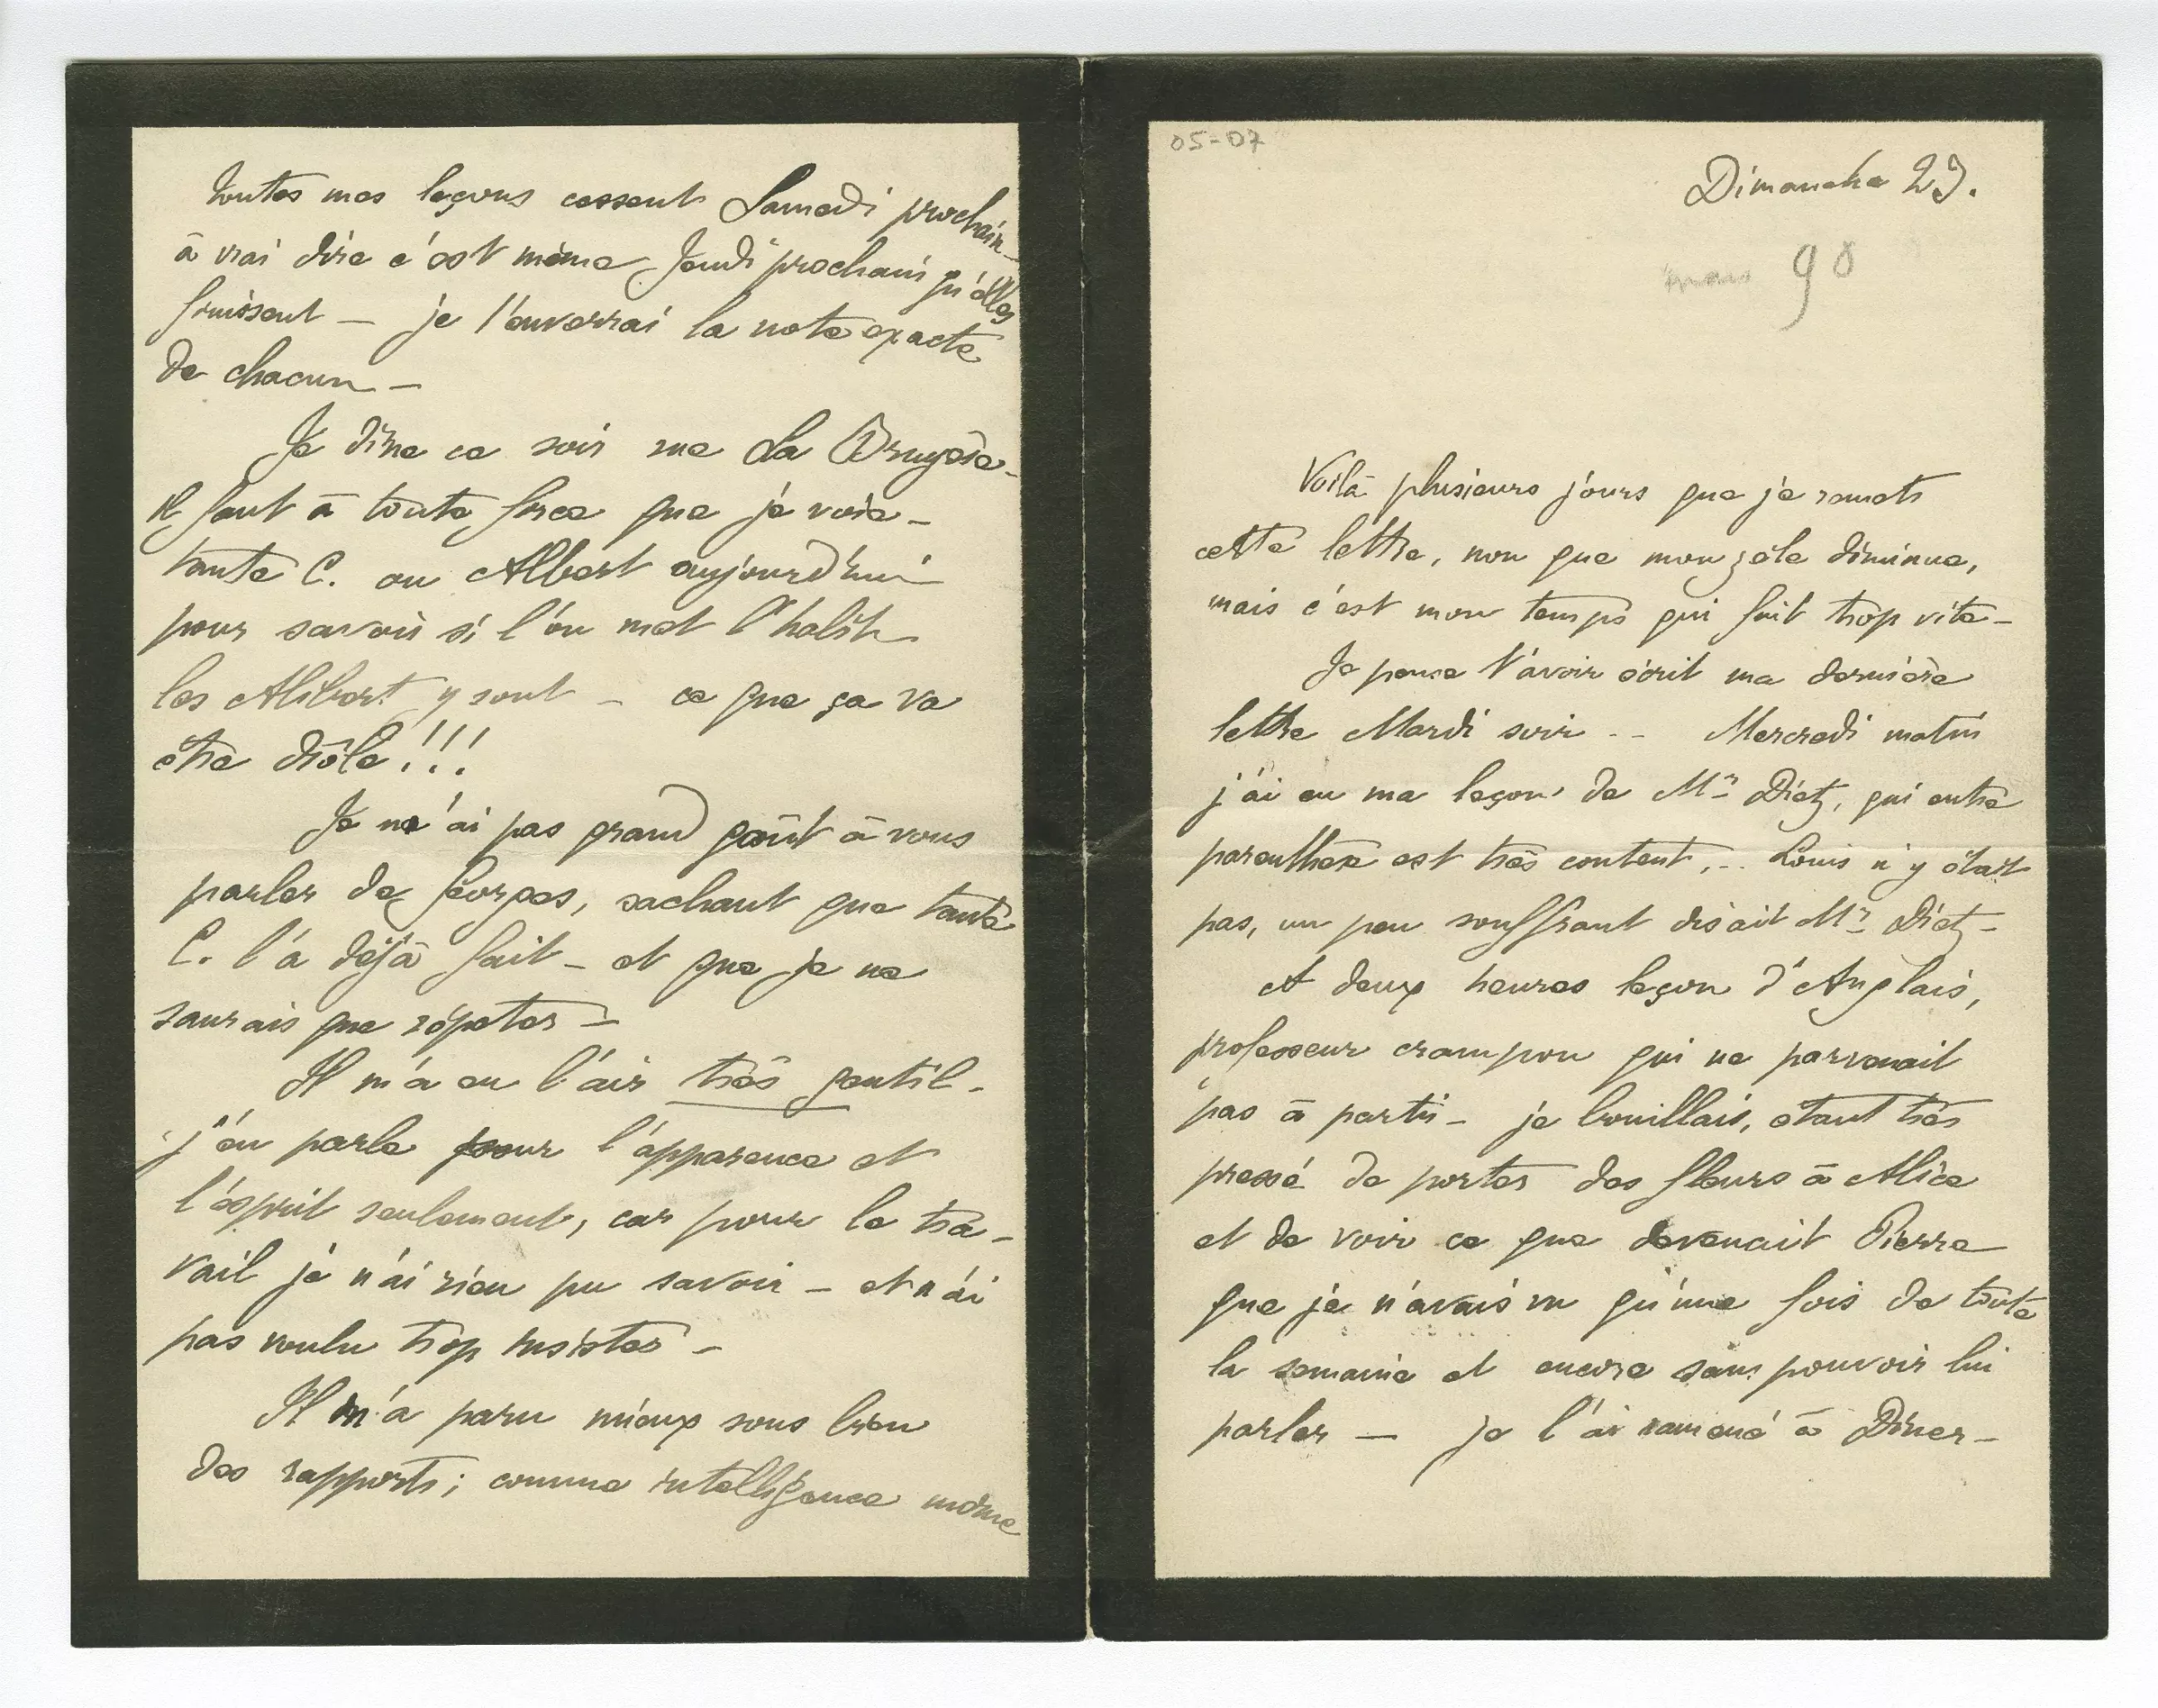 05-07
Dimanche 23.
mars 90
Voilà plusieurs jours que je remets
cette lettre, non que mon zèle diminue,
mais c'est mon temps qui fuit trop vite –
Je pense t'avoir écrit ma dernière
lettre Mardi soir -- Mercredi matin
j'ai eu ma leçon de Mr Dietz, qui entre
parenthèse est très content, -- Louis n'y était
pas, un peu souffrant disait Mr Dietz –
A deux heures leçon d'Anglais,
professeur crampon qui ne parvenait
pas à partir – je bouillais, étant très
pressé de porter des fleurs à Alice
et de voir ce que devenait Pierre
que je n'avais vu qu'une fois de toute
la semaine et encore sans pouvoir lui
parler — je l'ai ramené à Dîner –
toutes mes leçons cessent Samedi prochain –
à vrai dire c'est même Jeudi prochain qu'elles
finissent — je t'enverrai la note exacte
de chacun –
Je dîne ce soir rue La Bruyère –
il faut à toute force que je voie –
tante C. ou Albert aujourd'hui
pour savoir si l'on met l'habit
les Alibert y sont – ce que ça va
être drôle!!!
Je n'ai pas grand goût à vous
parler de Georges, sachant que tante
C. l'a déjà fait – et que je ne
saurais que répéter –
Il m'a eu l'air très gentil –
j'en parle pour l'apparence et
l'esprit seulement, car pour le tra–
vail je n'ai rien pu savoir – et n'ai
pas voulu trop insister –
Il m'a paru mieux sous bien
des rapports; comme intelligence même